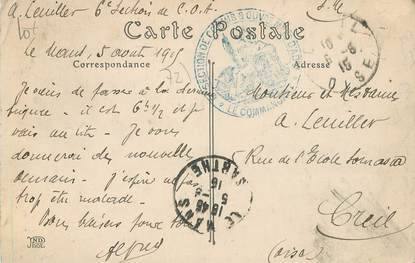 A. Leuiller 6e Section de C.O.A. S.M
Carte Postale
le Mans, 5 août 1915
Correspondance
Adresse
72
SECTION DE COMMIS & OUVRIERS
LE COMMANDANT
Je viens de passer à la dernière
piqure - il est 6h 1/2 et je
vais au lit - Je vous
donnerai des nouvelles
demain - j'espère ne pas
trop être malade -
Bons baisers pour tous
Monsieur et Madame
A. Leuiller
Rue de l'Ecole
Creil
(oise)
LE MANS
SARTHE
18 45
5 -8
15
ND
PHOT